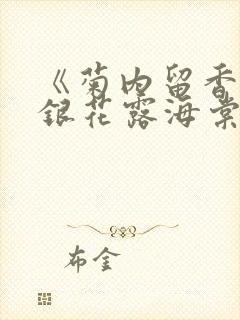 《菊内留香
銀花露海棠
布金